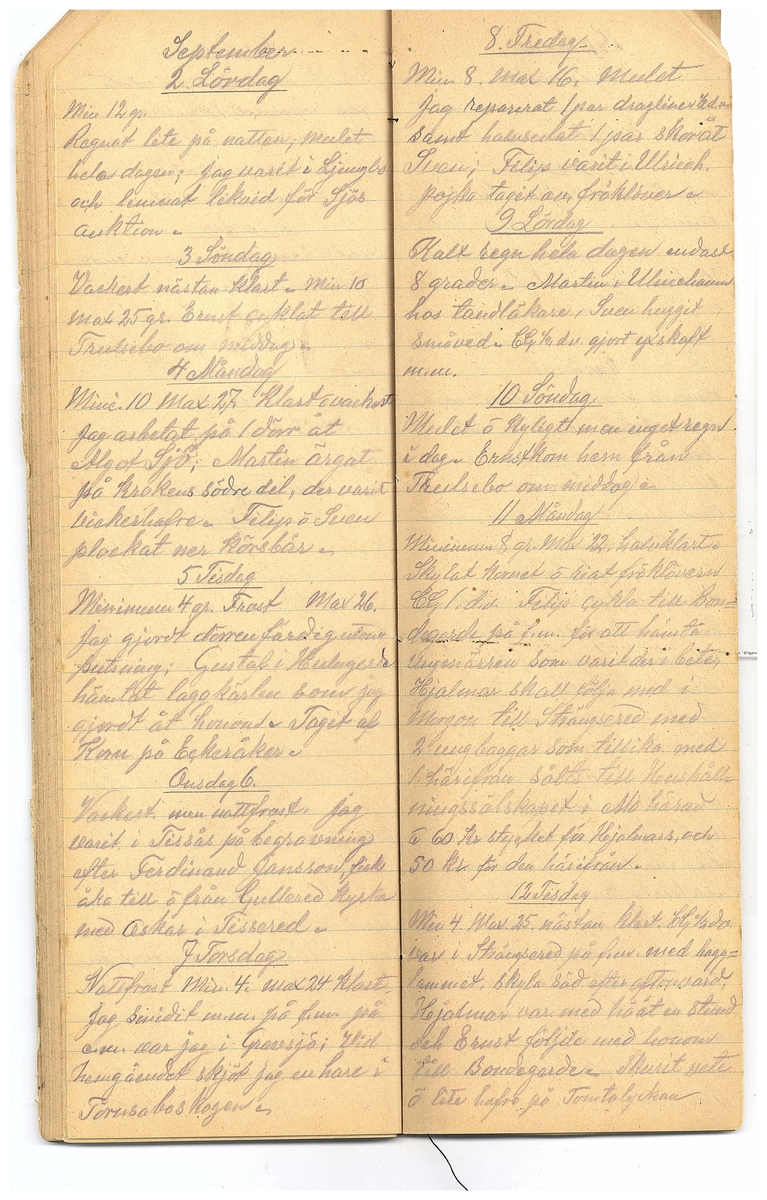 September
2. Lördag
Min 12 gr.
Regnat lite på natten, mulet
hela dagen; jag varit i Ljungbo
och lemnat likvid för Sjös
auktion.
3 Söndag
Vackert nästan klart. Min 10
max 25 gr. Ernst cyklat till
Trulsebo om middag.
4 Måndag
Mini. 10 Max 27. Klart o vackert
Jag arbetat på 1 dörr åt
Algot Sjö; Martin ärgat
på Krökens södre del, der varit
vickerhafre. Felip ö Sven
plockat ner körsbär.
5 Tisdag
Minimum 4 gr. Frost Max 26.
Jag gjordt dörren färdig utom
putsning; Gustaf i
hämtat laggkärlen som jag
gjordt åt honom. Taget af
Korn på Ekeråker.
Onsdag 6.
Vackert men nattfrost. Jag
varit i Tissås på begravning
efter Ferdinand Jansson, fick
åka till ö från Gullered kyrka
med Oskar i Tissered.
7 Torsdag
Nattfrost Min. 4. max 24 klart
Jag smidit m.m. på f.m. på
e.m. var jag i Grovsjö; Vid
hemgåendet skjöt jag en hare i
Tornsaboskogen.
8. Fredag.
Min 8. max 16. Mulet
Jag reparerat 1 par draglinor ½ d.v.
samt halvsulat 1 par skor åt
Sven; Felip varit i Ulrich.
pojka taget av fröklöver.
9 Lördag
Kalt regn hela dagen endast
8 grader. Martin i Ulricehamn
hos tandläkare, Sven huggit
småved. CG ½ d.v. gjort yxskaft
m.m.
10 Söndag.
Mulet ö kyligt men inget regn
i dag. Ernst kom hem från
Trulsebo om middag.
11 Måndag
Minimum 8 gr. Max 22. halvklart.
Skylat kornet ö fröklövern
CG 1. d.v. Felip cykla till Bon=
degärde på f.m. för att hämta
som varit der i bete,
Hjalmar skall följa med i
Morgon till Strängsered med
2 ungbaggar som tillika med
1 härifrån sålts till Hushåll=
ningssälskapet i Mo härad
a 60 Kr stycket för Hjalmars, och
50 Kr. för den härifrån.
12 Tisdag
Min 4. Max 25 nästan klart. CG ½ d.v.
var i Strängsered på f.m. med bagg=
lammet, skyla säd efter aftonvard,
Hjalmar var med hååt en stund
och Ernst följde med honom
till Bondegärde. Skurit vete
ö lite hafre på Tomtalyckan